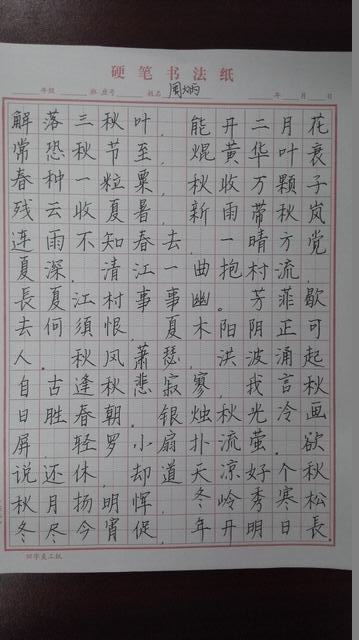 硬笔书法纸
年级 班 座号 姓名 周炳 年 月 日
解落三秋叶，能开二月花
常恐秋节至，焜黄华叶衰
春种一粒粟，秋收万颗子
残云收夏暑，新雨带秋岚
连雨不知春去，一晴方觉
夏深。清江一曲抱村流，
長夏江村事事幽。芳菲歇
去何须恨，夏木阴阴正可
人。秋风萧瑟，洪波涌起
自古逢秋悲寂寥，我言秋
日胜春朝。银烛秋光冷画
屏，轻罗小扇扑流萤。欲
说还休，却道天凉好个秋
秋月扬明恽，冬岭秀寒松
冬尽今宵促，年开明日長
田字美工纸